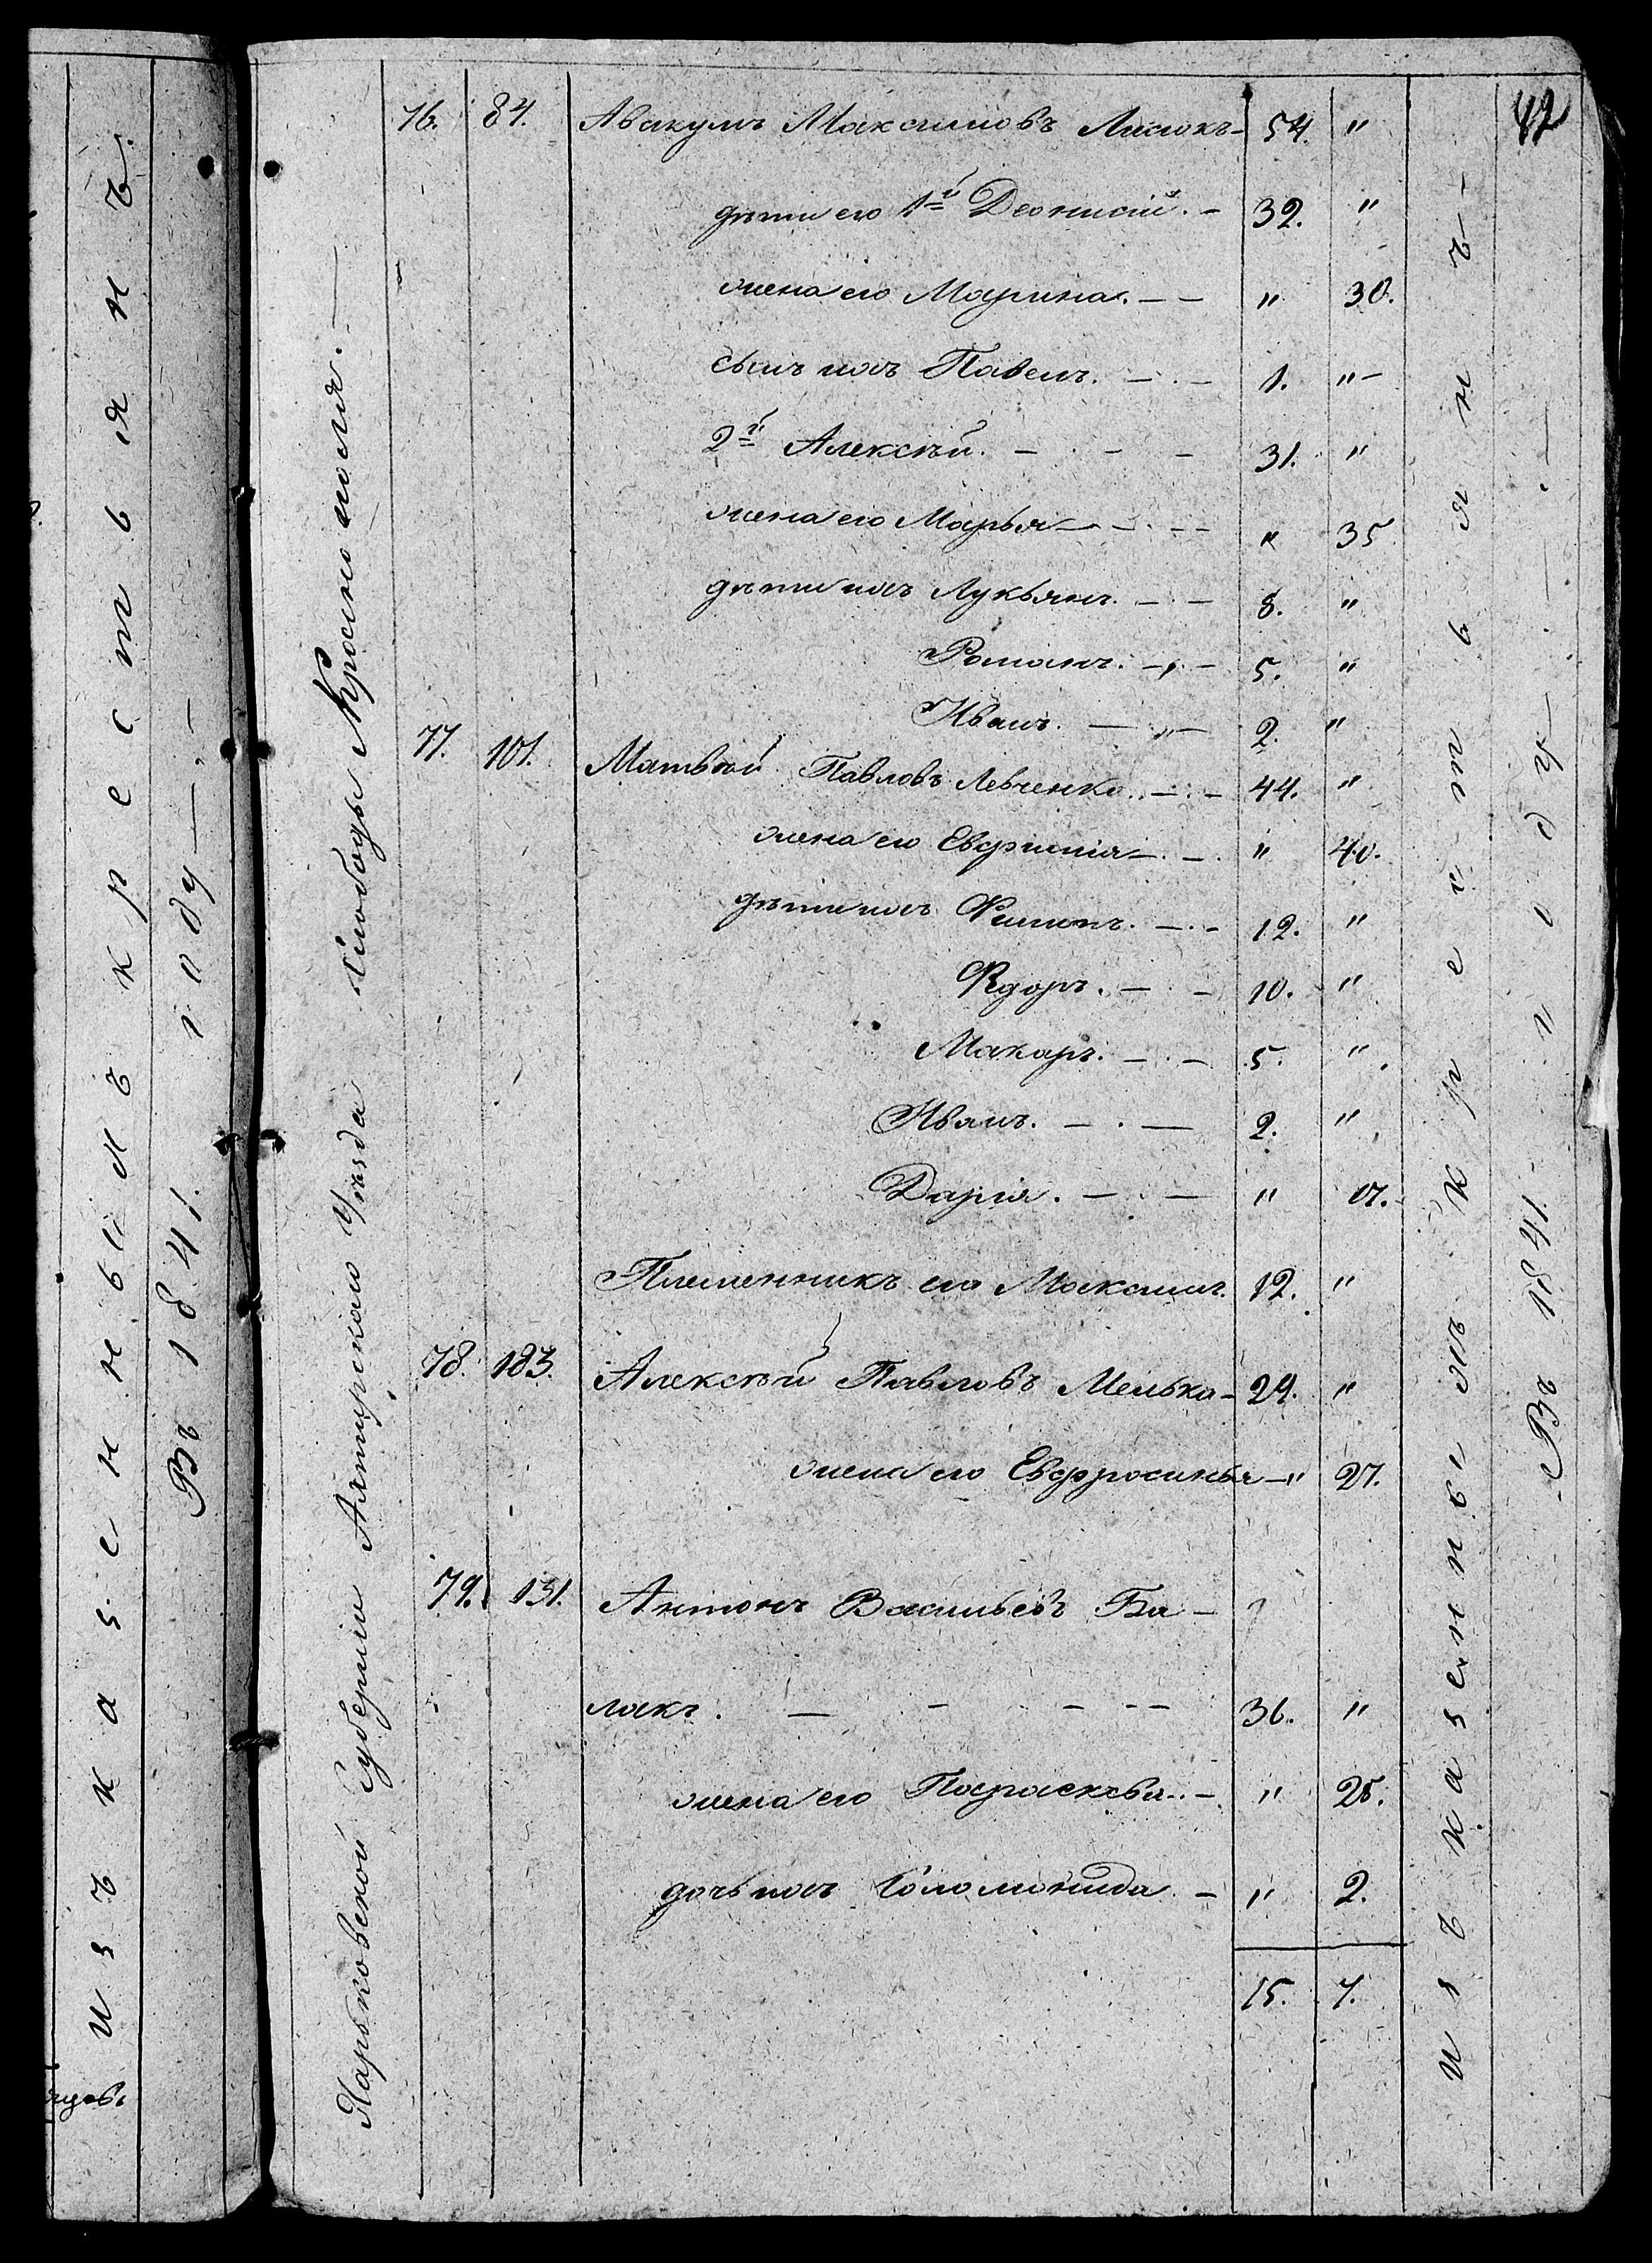 42
76. 84. Авакумъ Максимовъ Лисокъ- 54. "
дѣти его 1й Деонисій. - 32. "
жена его Марина. - - " 30.
сынъ ихъ Павелъ. - . - 1. " -
2й Алексѣй. - . - - 31. "
жена его Марья - . - . - - " 35
дѣти ихъ Лукьянъ. - . - 8. "
Романъ. - . - 5. "
Иванъ. - " - 2. "
77. 101. Матвѣй Павловъ Левченко. - . - 44. "
жена его Евфимія - . - . " 40.
дѣти ихъ Филипъ. - . - 12. "
Ѳедоръ. - . - 10. "
Макаръ. - . - 5. "
Иванъ. - . - 2. "
Дарія. - . - "
Племенникъ его Максимъ. 12. "
78. 183. Алексѣй Павловъ Мелько- 29. "
жена его Евфросинья - " 27.
79. 131. Антонъ Васильевъ Ба-
лакъ. - - - - - 36. "
жена его Параскева. - " 25.
дочь ихъ Соломонида. - " 2.
15. 7.
Харьковской Губерніи Ахтырского Уѣзда Слободы Краснополья. -
Изъ казенныхъ крестьянъ - -
Въ 1841. году - . - . -
Изъ казенныхъ крестьянъ.
Въ 1841. году - . -